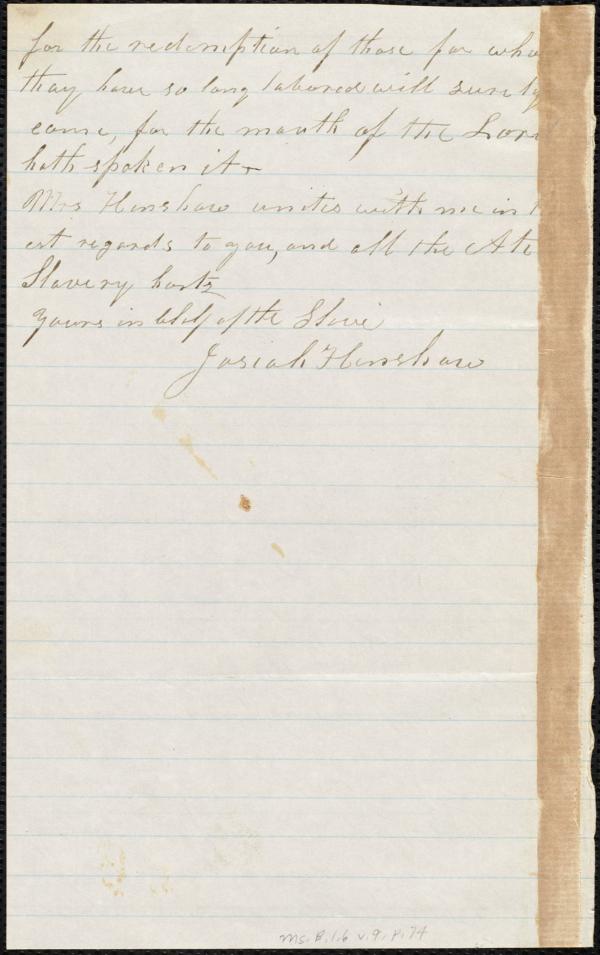 for the redemption of those for who
thay have so long labored will surely
come, for the mouth of the Lord
hath spoken it
Mrs Henshaw unites with me in
est regards to you, and all the
Slavery
yours in of the Slave
Josiah Henshaw
Ms. B. 1.6 v. 9, p. 74